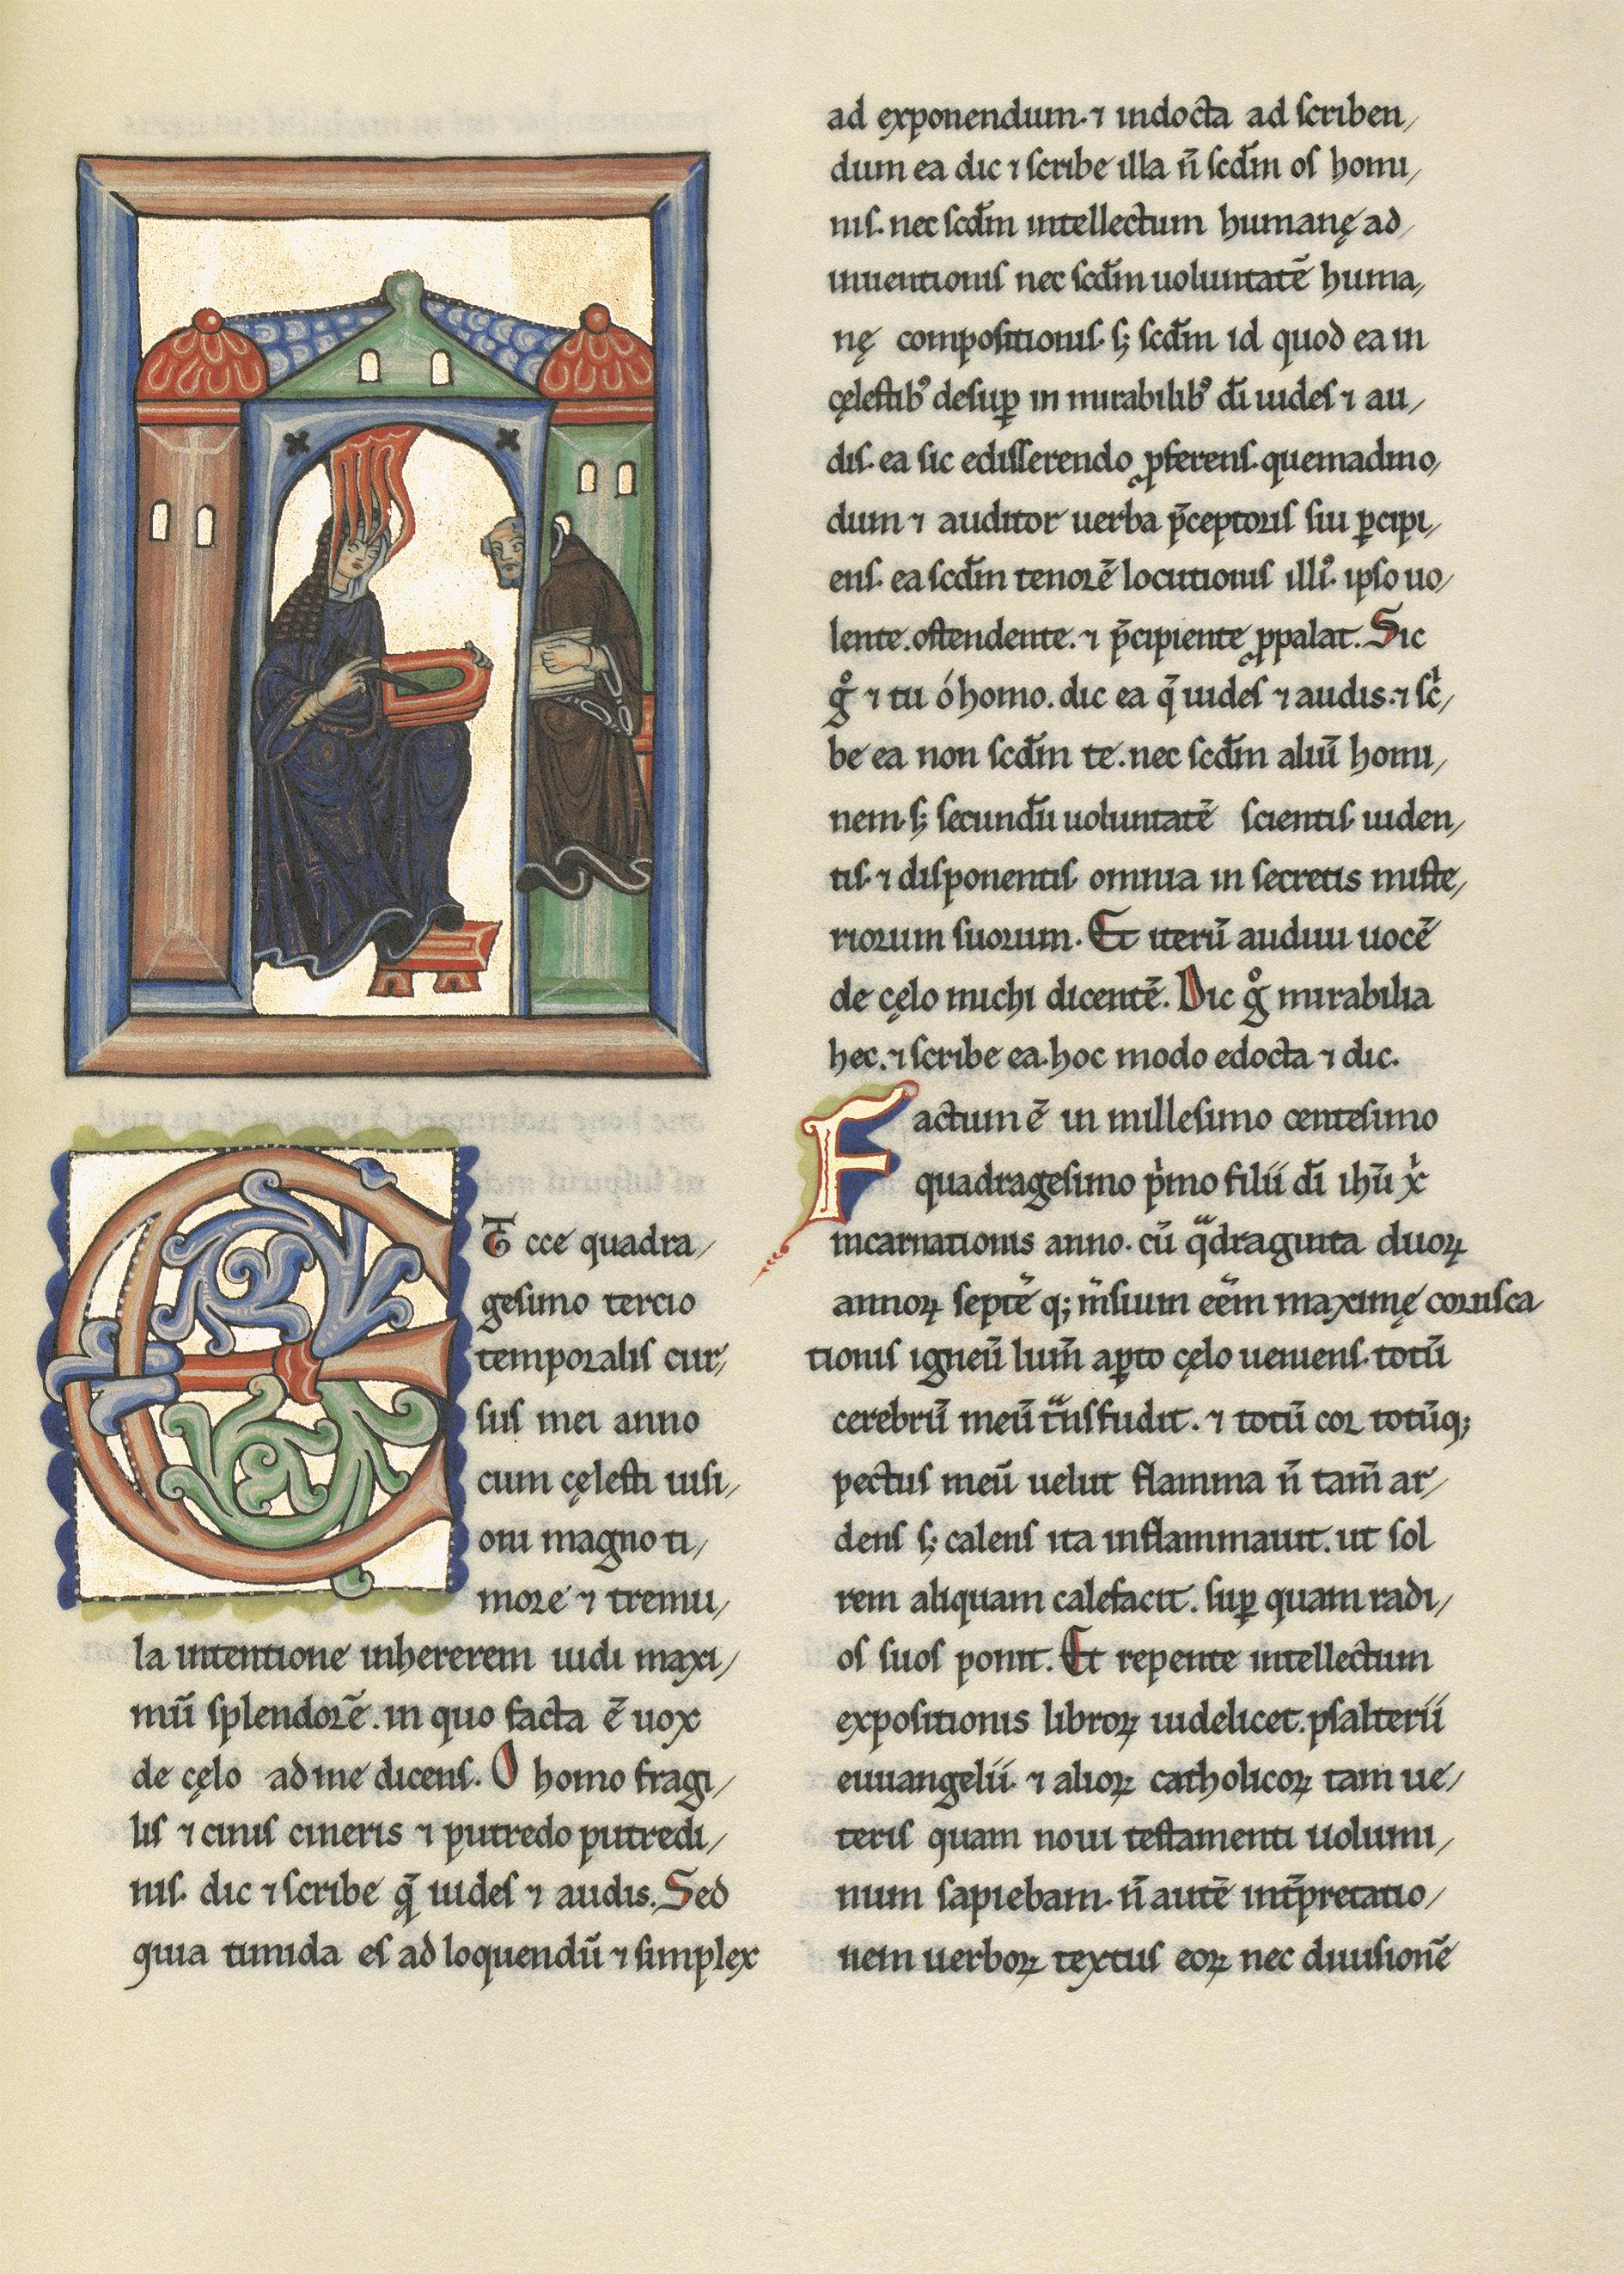 Et cce quadra/
gesimo tercio
temporalis cur/
sus mei anno
cum cęlesti uisi/
oni magno ti/
more ⁊ tremu/
la intentione inhererem uidi maxi/
mū splendorē. in quo facta ē uox
de cęlo ad me dicens. O homo fragi/
lis ⁊ cinis cineris ⁊ putredo putredi/
nis. dic ⁊ scribe q̄ uides ⁊ audis. Sed
quia timida es ad loquendū ⁊ simplex
ad exponendum. ⁊ indocta ad scriben/
dum ea dic ⁊ scribe illa n̄ scd̄m os homi/
nis. nec scd̄m intellectum humanę ad/
inuentionis nec scd̄m uoluntatē huma/
nę compositionis. s; scd̄m id quod ea in
cęlestibꝰ desuꝑ in mirabilibꝰ dī uides ⁊ au/
dis. ea sic edisserendo ꝓferens. quemadmo/
dum ⁊ auditor uerba p̄ceptoris sui ꝑcipi/
ens. ea scd̄m tenorē locutionis illiꝰ. ipso uo/
lente. ostendente. ⁊ p̄cipiente ꝓpalat. Sic
gͦ ⁊ tu ó homo. dic ea q̄ uides ⁊ audis. ⁊ scͥ/
be ea non scd̄m te. nec scd̄m aliū homi/
nem. s; secundū uoluntatē scientis. uiden/
tis. ⁊ disponentis omnia in secretis miste/
riorum suorum. Et iterū audiui uocē
de cęlo michi dicentē. Dic gͦ mirabilia
hec. ⁊ scribe ea. hoc modo edocta ⁊ dic.
Factum ē in millesimo centesimo
quadragesimo pͥmo filii dī ihū xͥ
incarnationis anno. cū qᷓdraginta duoꝝ
annoꝝ septē q; m̄sium eēm maximę corusca
tionis igneū lum̄ aꝑto cęlo ueniens. totū
cerebrū meū tᷓnsfudit. ⁊ totū cor totūq;
pectus meū uelut flamma n̄ tam̄ ar/
dens s; calens ita inflammauit. ut sol
rem aliquam calefacit. suꝑ quam radi/
os suos ponit. Et repente intellectum
expositionis libroꝝ uidelicet. psalterii
euuangelii. ⁊ alioꝝ catholicoꝝ tam ue/
teris quam noui testamenti uolumi/
num sapiebam. n̄ autē int̄pretatio/
nem uerboꝝ textus eoꝝ nec diuisionē